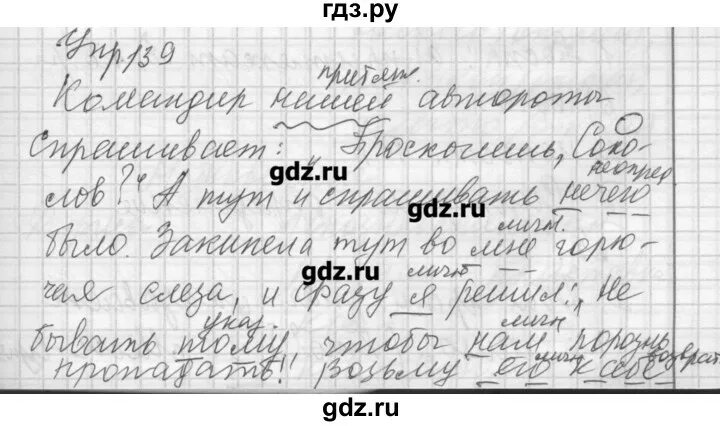 гдз.ру
Упр 139
притяж.
Командир нашей автороты
спрашивает: „Проскочишь, Соко-
неопред
лов?“ А тут и спрашивать нечего
личн.
было. Закипела тут во мне горю-
личн
чая слеза, и сразу я решил: „Не
указ. личн
бывать тому, чтобы нам порознь
личн возврат
пропадать!“ Возьму его к себе
gdz.ru
gdz.ru
gdz.ru
gdz.ru